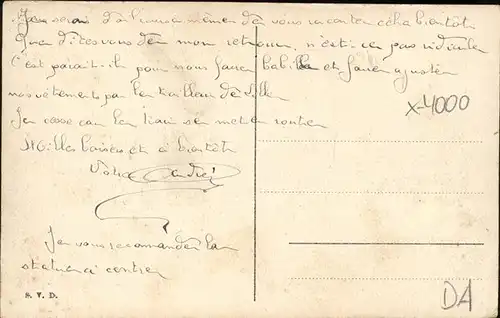 J'en serais d'ailleurs à même de vous raconter cela bientôt
Que dites vous de mon retour, n'est-ce pas ridicule
C'est parait-il pour nous faire habiller et faire ajuster
nos vêtements par le tailleur de Lille
Je cesse car le train se met en route
Mille baisers et à bientôt
Votre André
Je vous recommande la
statue ci contre
S. V. D.
X-4000
DA